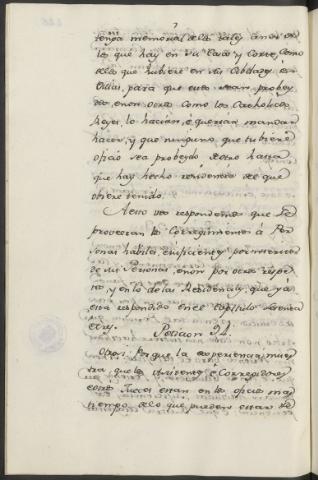 tenga memorial de los tales ansi de
los que hay en su Casa y Corte, como
de los que hubiere en sus Cibdades è
Villas, para que estos sean probey
dos en ora como los Catholicos
Reyes lo hacian, è querian mandar
hacer, y que ninguno que tubiere
oficio sea probeydo de otro hasta
que hay hecho residencia del que
obiere tenido.
A esto vos respondemos que se
proveeran los Corregimientos à Per
sonas habiles, è suficientes por meritos
de sus Personas, è non por otros respe
tos, y en lo de las Residencias, que ya
està respondido en el capitulo
Peticion 94.
Otrosi: Porque la experiencia mues
tra que los Asistentes è Corregidores
è otros Jueces estan en los oficios mas
tiempo de lo que pueden estar de